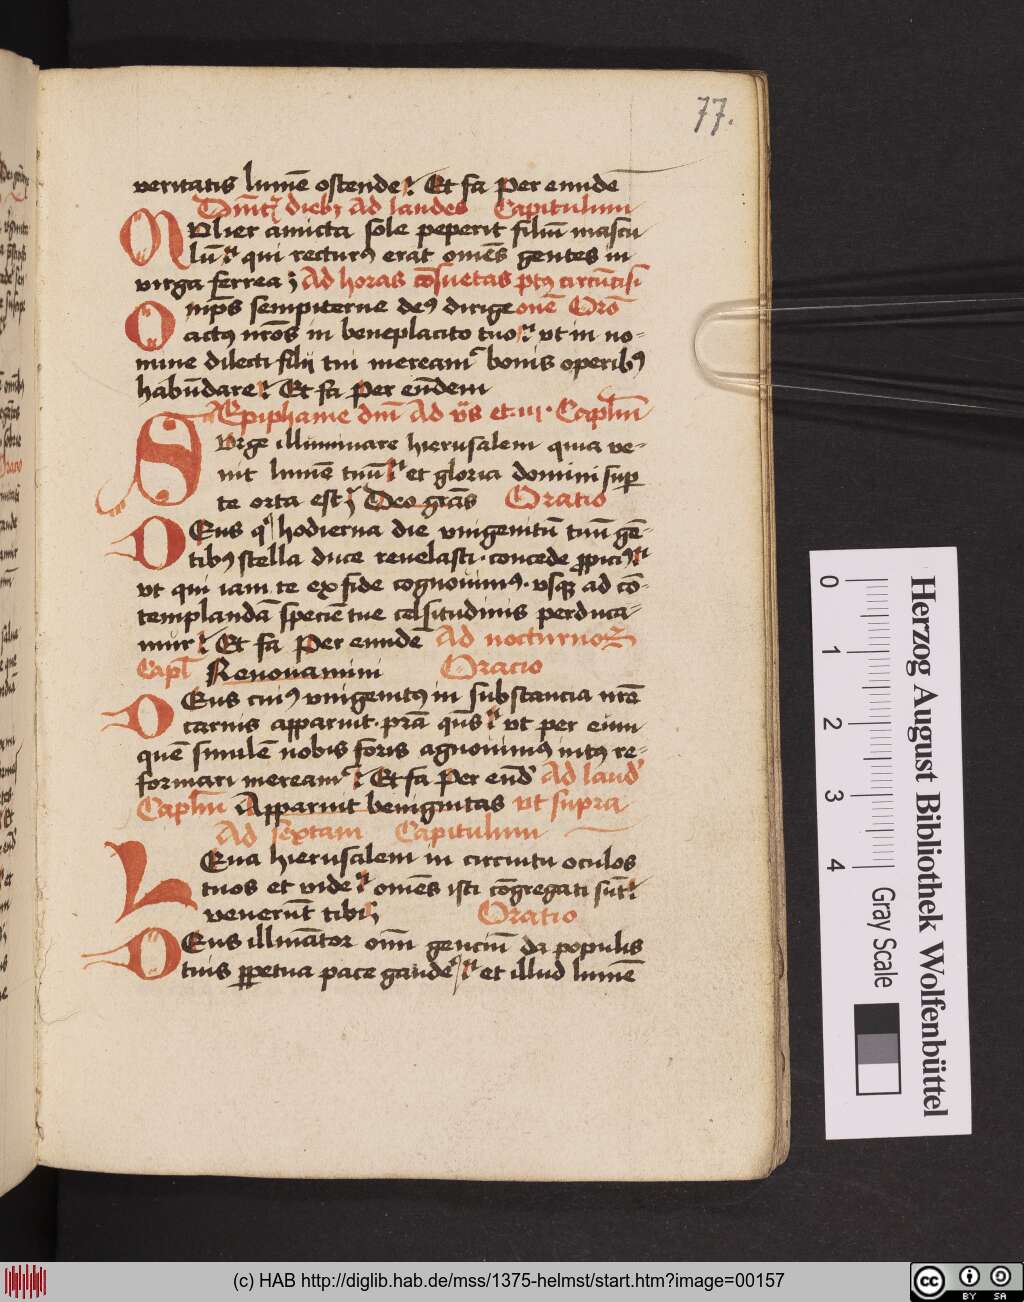 77.
veritatis lumē ostende Et fa Per eundē
dieb9 Ad laudes Capitulum
Mulier amicta sole peperit filiū mascu
lū qui rectur9 erat omēs gentes in
virga ferrea Ad horas cōsuetas
Omps sempiterne de9 dirige onē Orō
act9 nros in beneplacito tuo vt in no-
mine dilecti filij tui mereamr bonis operib9
habūdare Et fa Per eūdem
Epiphanie dni Ad et Caplm
Surge illuminare hierusalem quia ve-
nit lumē tuū et gloria domini sup
te orta est Deo grās Oratio
Deus q hodierna die vnigenitū tuū gē-
tib9 stella duce reuelasti concede
vt qui iam te ex fide cognouim9 vsq ad cō-
templandā speciē tue celsitudinis perduca-
mur Et fa Per eundē Ad nocturnos
Capl Renouamini Oracio
Deus cui9 vnigenit9 in substancia nrē
carnis apparuit prā qūs vt per eum
quē similē nobis foris agnouim9 int9 re-
formari mereamr Et fa Per eūd Ad laud
Caplm Apparuit benignitas vt supra
Ad sextam Capitulum
Leua hierusalem in circuitu oculos
tuos et vide omēs isti cōgregati sūt
venerūt tibi Oratio
Deus illmātor oīm genciū da populis
tuis ppetua pace gaudē et illud lumē
Herzog August Bibliothek Wolfenbüttel
0 1 2 3 4
Gray Scale
(c) HAB http://diglib.hab.de/mss/1375-helmst/start.htm?image=00157
cc BY SA